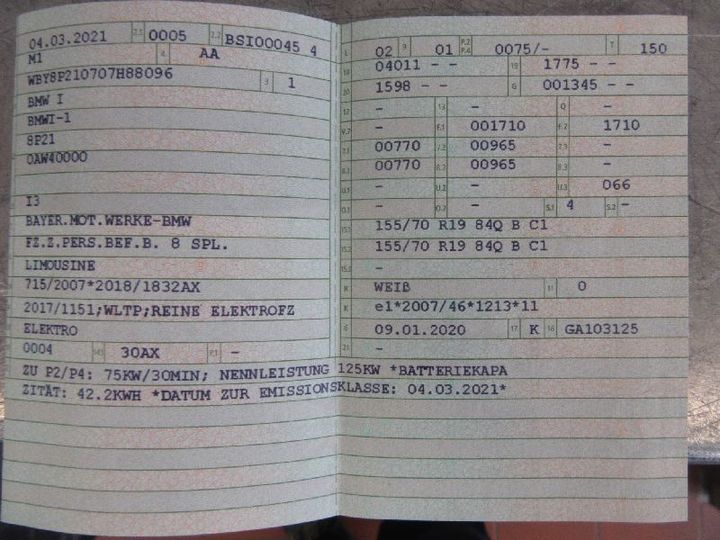 04.03.2021 2.1 0005 2.2 BSI00045 4
M1 4 AA
WBY8P210707H88096 3 1
BMW I
BMWI-1
8P21
0AW40000
I3
BAYER.MOT.WERKE-BMW
FZ.Z.PERS.BEF.B. 8 SPL.
LIMOUSINE
715/2007*2018/1832AX
2017/1151;WLTP;REINE ELEKTROFZ
ELEKTRO
0004 14.1 30AX P.1 -
L 02 9 01 P.2 P.4 0075/- T 150
18 04011 - - 19 1775 - -
20 1598 - - G 001345 - -
12 - 13 - Q -
V.7 - F.1 001710 F.2 1710
7.1 00770 7.2 00965 7.3 -
8.1 00770 8.2 00965 8.3 -
U.1 - U.2 - U.3 066
O.1 - O.2 - S.1 4 S.2 -
15.1 155/70 R19 84Q B C1
15.2 155/70 R19 84Q B C1
15.3 -
R WEIß 11 0
K e1*2007/46*1213*11
6 09.01.2020 17 K 16 GA103125
21 -
ZU P2/P4: 75KW/30MIN; NENNLEISTUNG 125KW *BATTERIEKAPA
ZITÄT: 42.2KWH *DATUM ZUR EMISSIONSKLASSE: 04.03.2021*